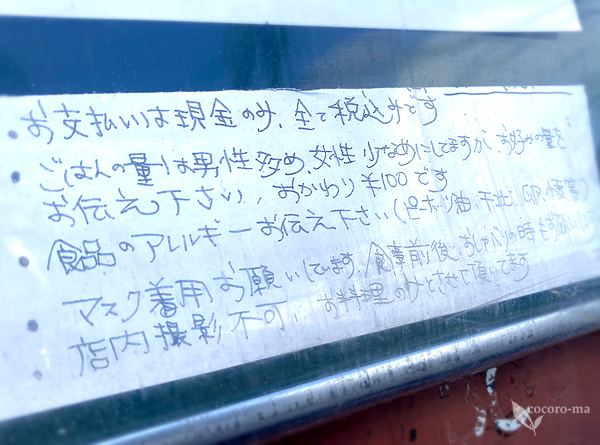 ・お支払いは現金のみ、全て税込みです
・ごはんの量は男性多め、女性少なめにしてますが、お好みの量を
お伝え下さい、おかわり¥100です
・食品のアレルギーお伝え下さい(ピーナッツ油、
・マスク着用お願いしています、食事前後、おしゃべりの時もお願い
・店内撮影不可、お料理のみとさせて頂いてます
cocoro-ma